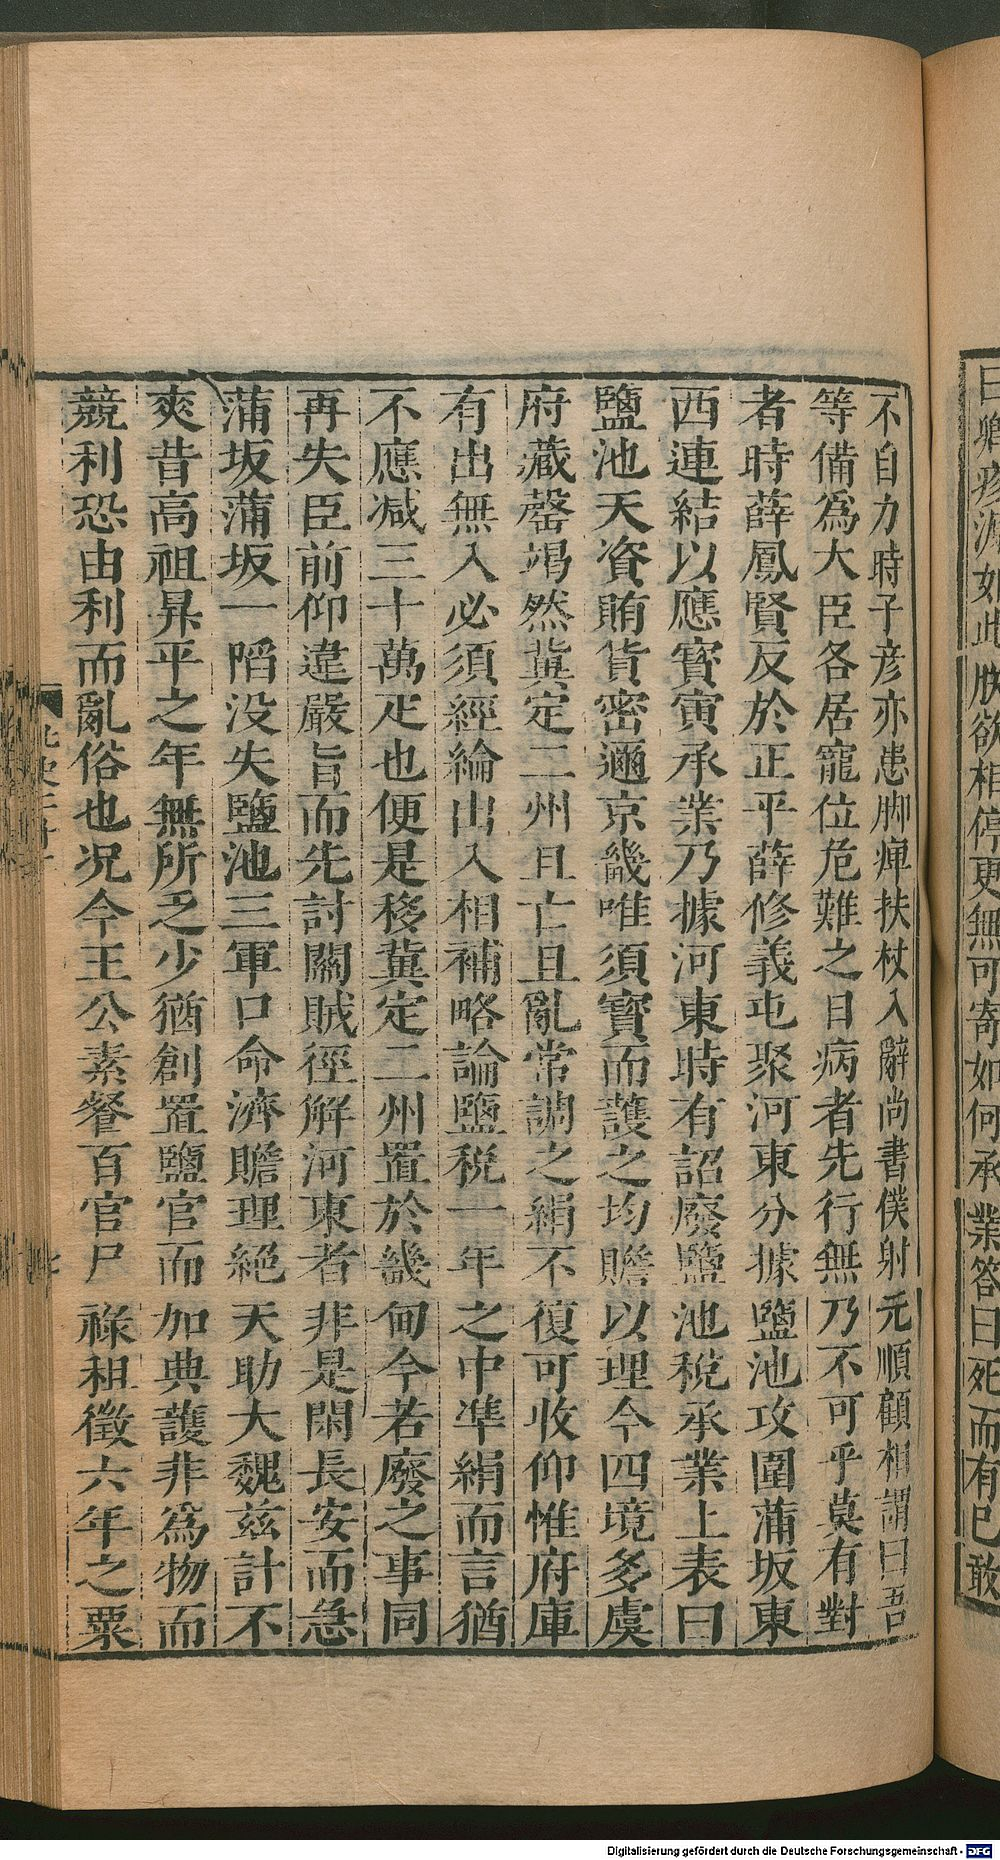 曰卿疹源如此朕欲相停更無可寄如何承業答曰死而有已敢
不自力時子彦亦患脚痺扶杖入辭尚書僕射元順顧相謂曰吾
等備爲大臣各居寵位危難之日病者先行無乃不可乎莫有對
者時薛鳳賢反於正平薛修義屯聚河東分據鹽池攻圍蒲坂東
西連結以應寶寅承業乃據河東時有詔廢鹽池稅承業上表曰
鹽池天資賄貨密邇京畿唯須寶而護之均贍以理今四境多虞
府藏罄竭然冀定二州且亡且亂常調之絹不復可收仰惟府庫
有出無入必須經綸出入相補略論鹽稅一年之中準絹而言猶
不應减三十萬疋也便是移冀定二州置於畿甸今若廢之事同
再失臣前仰違嚴旨而先討關賊徑解河東者非是閑長安而急
蒲坂蒲坂一陷没失鹽池三軍口命濟贍理絕天助大魏兹計不
爽昔高祖昇平之年無所乏少猶創置鹽官而加典護非爲物而
競利恐由利而亂俗也况今王公素餐百官尸祿租徵六年之粟
Digitalisierung gefördert durch die Deutsche Forschungsgemeinschaft - DFG